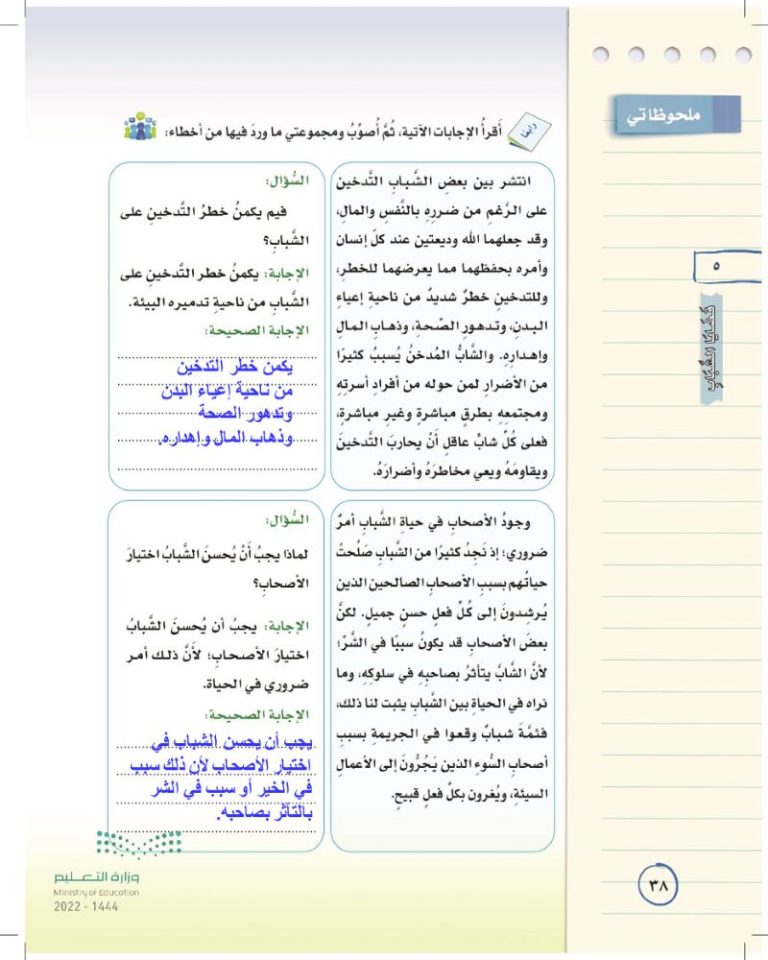 ملحوظاتي
رابعًا
أَقرأُ الإجابات الآتية، ثُمَّ أُصوِّبُ ومجموعتي ما وردَ فيها من أخطاء:
انتشر بين بعضِ الشَّبابِ التَّدخين
على الرَّغم من ضررِهِ بالنَّفسِ والمالِ،
وقد جعلهما الله وديعتين عند كلّ إنسان
وأمره بحفظهما مما يعرضهما للخطرِ،
وللتدخينِ خطرٌ شديدٌ من ناحيةِ إعياءِ
البدنِ، وتدهورِ الصِّحةِ، وذهابِ المالِ
وإهدارِهِ. والشَّابُّ المُدخنُ يُسببُ كثيرًا
من الأضرارِ لمن حوله من أفرادِ أسرتِهِ
ومجتمعِهِ بطرقٍ مباشرةٍ وغيرِ مباشرةٍ،
فعلى كُلِّ شابٍّ عاقلٍ أَنْ يحاربَ التَّدخينَ
ويقاومَهُ ويعي مخاطرَهُ وأضرارَهُ.
السُّؤال:
فيم يكمنُ خطرُ التَّدخينِ على
الشَّبابِ؟
الإجابة: يكمنُ خطر التَّدخينِ على
الشَّبابِ من ناحيةِ تدميرِه البيئة.
الإجابة الصحيحة:
يكمن خطر التدخين
من ناحية إعياء البدن
وتدهور الصحة
وذهاب المال وإهداره.
وجودُ الأصحابِ في حياةِ الشَّبابِ أمرٌ
ضروري؛ إذ نَجِدُ كثيرًا من الشَّبابِ صَلُحتْ
حياتُهم بسببِ الأصحابِ الصالحين الذين
يُرشدونَ إلى كُلِّ فعلٍ حسنٍ جميلٍ. لكنَّ
بعضَ الأصحابِ قد يكونُ سببًا في الشَّرِّ؛
لأنَّ الشَّابَّ يتأثرُ بصاحبِهِ في سلوكِهِ، وما
نراه في الحياةِ بين الشَّبابِ يثبت لنا ذلك،
فثمَّةَ شبابٌ وقعوا في الجريمةِ بسببِ
أصحابِ السُّوءِ الذين يَجُرُّونَ إلى الأعمالِ
السيئةِ، ويُغرون بكلِّ فعلٍ قبيحٍ.
السُّؤال:
لماذا يجبُ أَنْ يُحسنَ الشَّبابُ اختيارَ
الأصحابِ؟
الإجابة: يجبُ أن يُحسنَ الشَّبابُ
اختيارَ الأصحابِ؛ لأَنَّ ذلك أمر
ضروري في الحياة.
الإجابة الصحيحة:
يجب أن يحسن الشباب في
اختيار الأصحاب لأن ذلك سبب
في الخير أو سبب في الشر
بالتأثر بصاحبه.
٥
قضايا الشباب
٣٨
وزارة التعليم
Ministry of Education
2022 - 1444